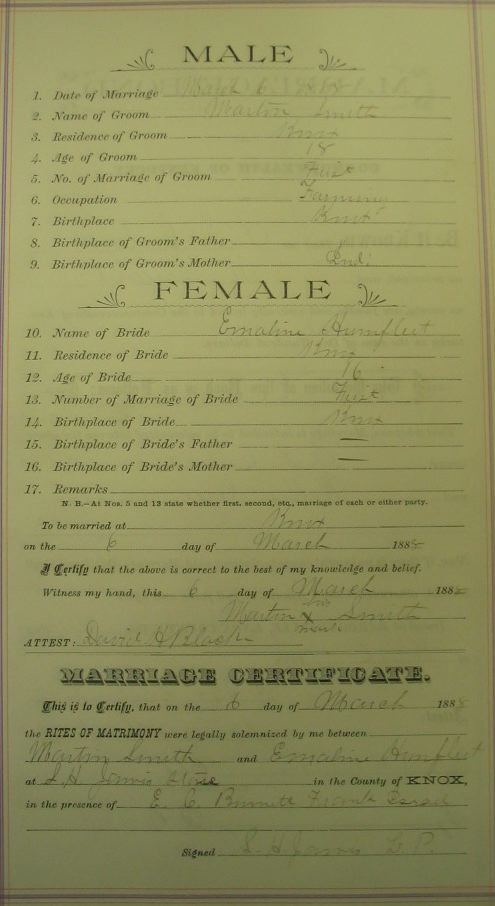 MALE
1. Date of Marriage March 6 1888
2. Name of Groom Martin Smith
3. Residence of Groom Knox
4. Age of Groom 18
5. No. of Marriage of Groom First
6. Occupation Farming
7. Birthplace Knox
8. Birthplace of Groom's Father
9. Birthplace of Groom's Mother Ind.
FEMALE
10. Name of Bride Emaline Humfleet
11. Residence of Bride Knox
12. Age of Bride 16
13. Number of Marriage of Bride First
14. Birthplace of Bride Knox
15. Birthplace of Bride's Father —
16. Birthplace of Bride's Mother —
17. Remarks
N. B.—At Nos. 5 and 13 state whether first, second, etc., marriage of each or either party.
To be married at Knox
on the 6 day of March 1888
I Certify that the above is correct to the best of my knowledge and belief.
Witness my hand, this 6 day of March 188
his
Martin X Smith
mark
ATTEST: David H Black
MARRIAGE CERTIFICATE.
This is to Certify, that on the 6 day of March 1888
the RITES OF MATRIMONY were legally solemnized by me between
Martin Smith and Emaline Humfleet
at S. H. Jarvis Store in the County of KNOX,
in the presence of E. C. Burnett Frank
Signed S. H. Jarvis